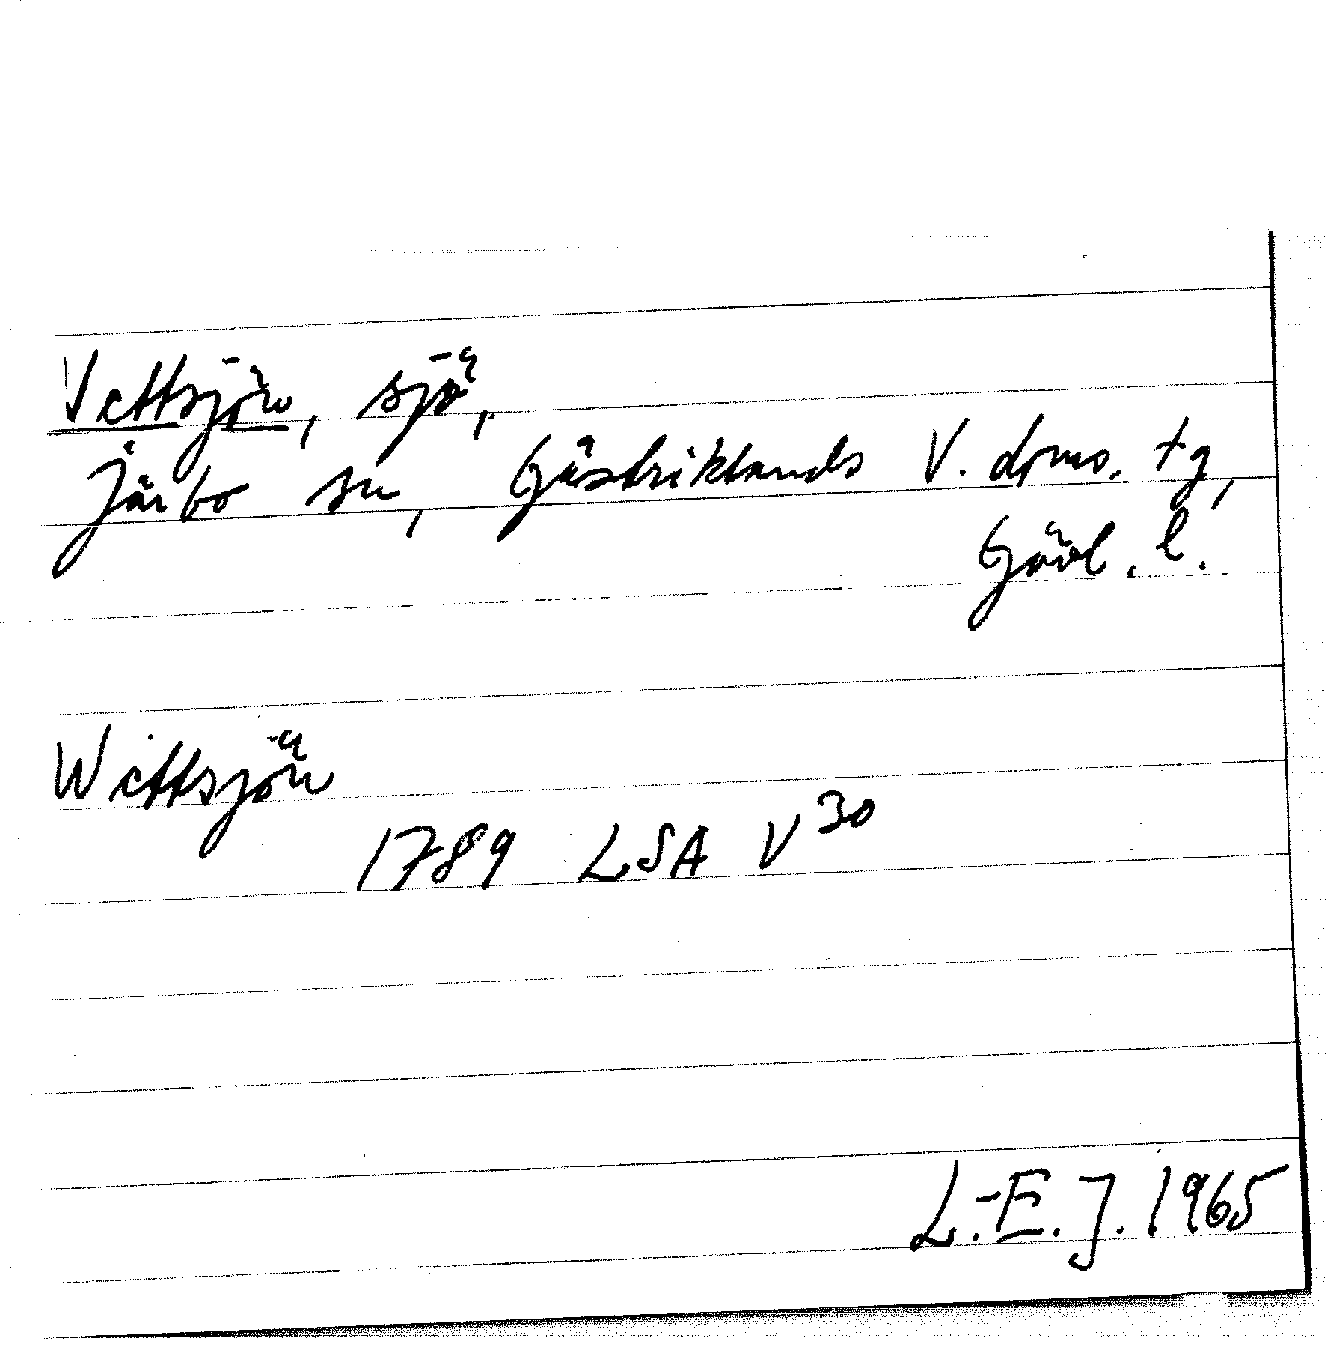 Vettsjön, sjö,
Järbo sn, Gästriklands V. doms. tg,
Gävl. l.
Wittsjön
1789 LSA V30
L.-E. J. 1965